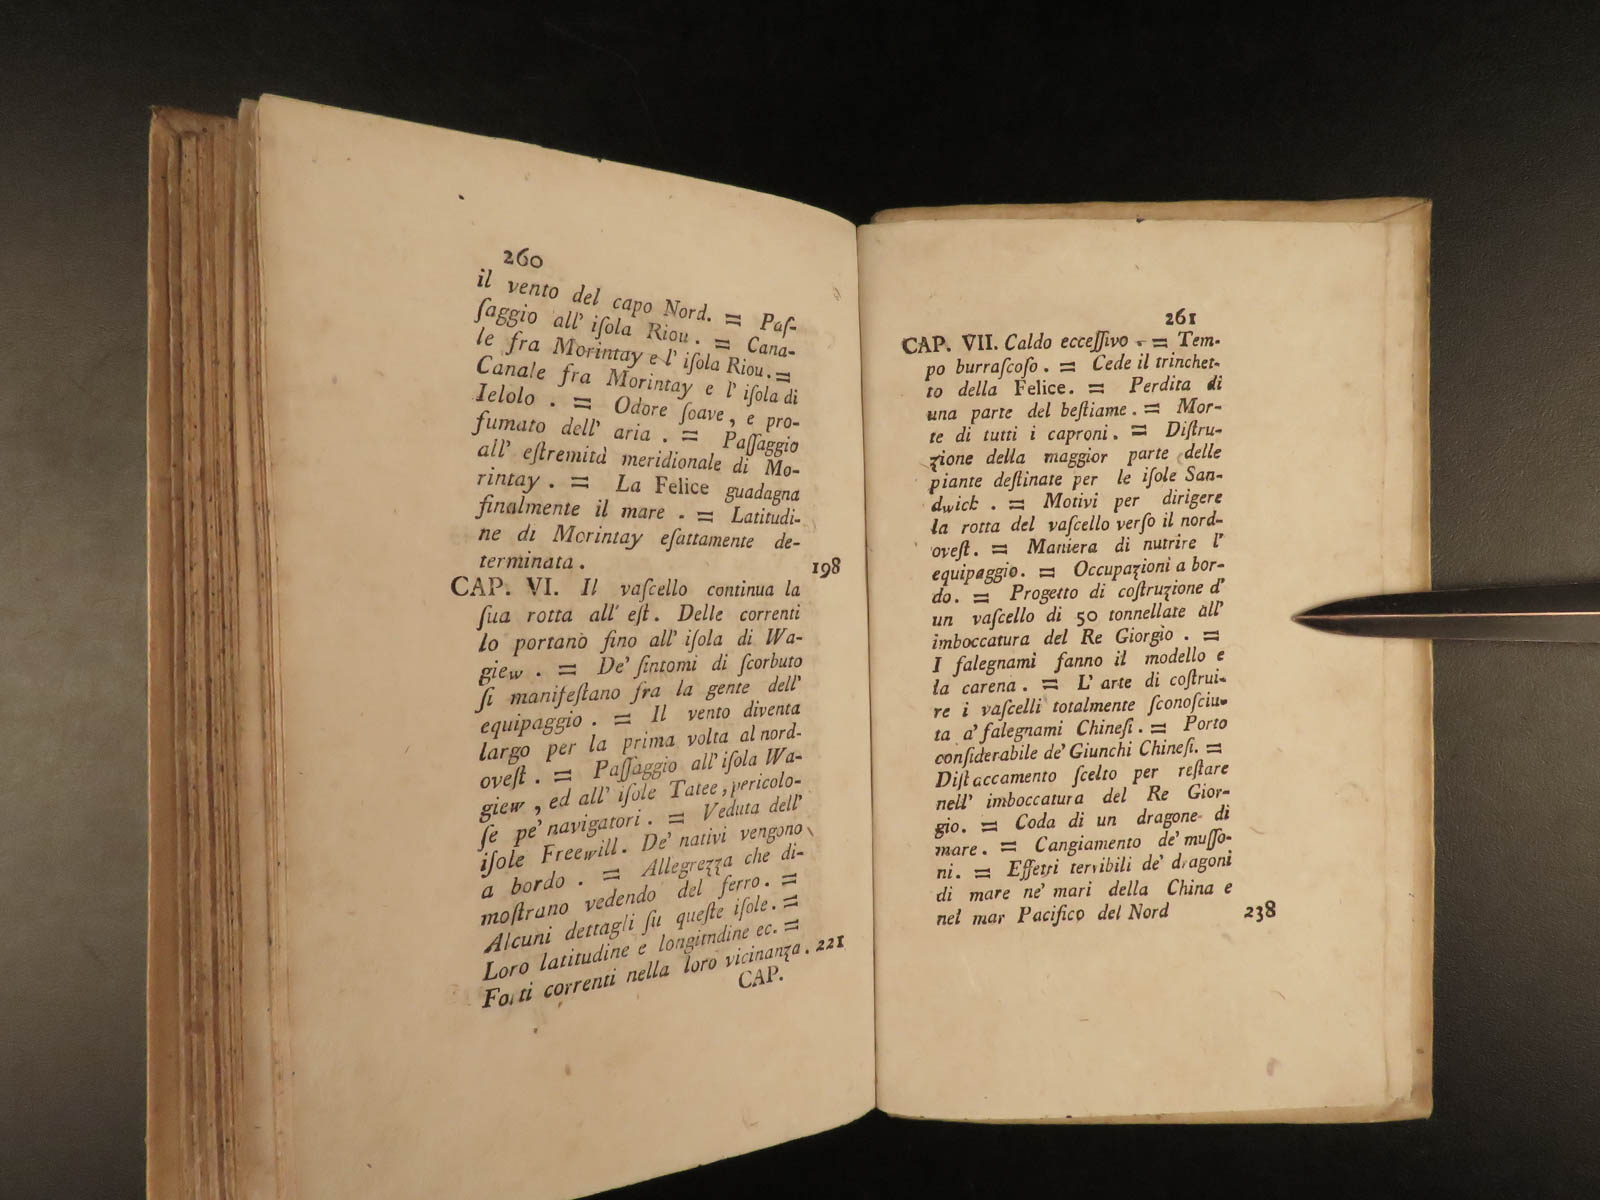 260
il vento del capo Nord. = Paſ-
ſaggio all' iſola Riou. = Cana-
le fra Morintay e l' iſola Riou. =
Canale fra Morintay e l' iſola di
Ielolo . = Odore ſoave, e pro-
fumato dell' aria . = Paſſaggio
all' eſtremità meridionale di Mo-
rintay . = La Felice guadagna
finalmente il mare . = Latitudi-
ne di Morintay eſattamente de-
terminata . 198
CAP. VI. Il vaſcello continua la
ſua rotta all' eſt. Delle correnti
lo portano fino all' iſola di Wa-
giew . = De' ſintomi di ſcorbuto
ſi manifeſtano fra la gente dell'
equipaggio . = Il vento diventa
largo per la prima volta al nord-
oveſt . = Paſſaggio all' iſola Wa-
giew , ed all' iſole Tatee, pericolo-
ſe pe' navigatori. = Veduta dell'
iſole Freewill. De' nativi vengono
a bordo . = Allegrezza che di-
moſtrano vedendo del ferro. =
Alcuni dettagli ſu queſte iſole. =
Loro latitudine e longitndine ec. =
Forti correnti nella loro vicinanza. 221
CAP.
261
CAP. VII. Caldo ecceſſivo . = Tem-
po burraſcoſo . = Cede il trinchet-
to della Felice. = Perdita di
una parte del beſtiame. = Mor-
te di tutti i caproni. = Diſtru-
zione della maggior parte delle
piante deſtinate per le iſole San-
dwick . = Motivi per dirigere
la rotta del vaſcello verſo il nord-
oveſt. = Maniera di nutrire l'
equipaggio. = Occupazioni a bor-
do. = Progetto di coſtruzione d'
un vaſcello di 50 tonnellate all'
imboccatura del Re Giorgio . =
I falegnami fanno il modello e
la carena . = L' arte di coſtrui-
re i vaſcelli totalmente ſconoſciu-
ta a' falegnami Chineſi. = Porto
conſiderabile de' Giunchi Chineſi. =
Diſtaccamento ſcelto per reſtare
nell' imboccatura del Re Gior-
gio. = Coda di un dragone di
mare. = Cangiamento de' muſſo-
ni. = Effetti terribili de' dragoni
di mare ne' mari della China e
nel mar Pacifico del Nord 238